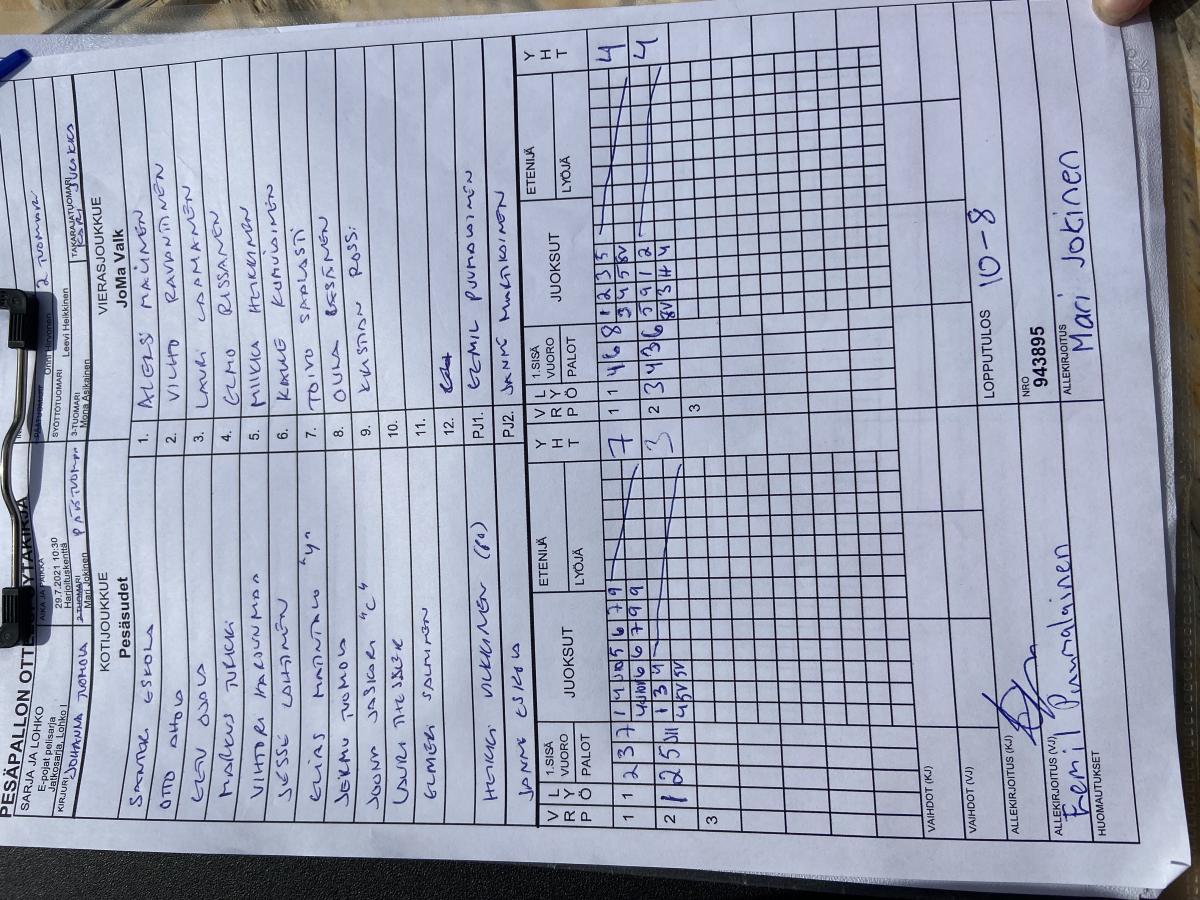 PESÄPALLON OTTELUPÖYTÄKIRJA
SARJA JA LOHKO
E-pojat pelisarja
Jatkosarja, Lohko I
AIKA JA PAIKKA
29.7.2021 10:30
Harjoituskenttä
Otin Hirvonen 2 TUOMARI
SYÖTTÖTUOMARI Leevi Heikkinen
KIRJURI JOHANNA TUOMOLA
2-TUOMARI
Mari Jokinen
3-TUOMARI
Mona Asikainen
TAKARAJATUOMARI
KOTIJOUKKUE
Pesäsudet
VIERASJOUKKUE
JoMa Valk
SANTERI ESKOLA 1. ALEKSI MÄLINEN
OTTO AHOLA 2. VILHO RAVANTINEN
EETU OJALA 3. LAURI LAAMANEN
MARKUS TURKKI 4. ELMO RISSANEN
VIHTORI HAKUNMAA 5. MIIKKA HEIKKINEN
JESSE LAHTINEN 6. KALLE KUMULAINEN
ELIAS MANTALO "4" 7. TOIVO SAPLASTI
JERKAU TUOMOLA 8. OULA PESÄNEN
JOONA JASKARI "C" 9. KRISTIAN ROSSI
LAURI THESSLER 10.
ELMERI SALMINEN 11.
12.
HEIKKI VIKKINEN (PO) PJ1. EEMIL PUUMALAINEN
JANNE ESKOLA PJ2. JANNE MATIKAINEN
V R P L Y Ö 1.SISÄ VUORO PALOT JUOKSUT ETENIJÄ LYÖJÄ Y H T V R P L Y Ö 1.SISÄ VUORO PALOT JUOKSUT ETENIJÄ LYÖJÄ Y H T
1 1 2 3 7 1 11 10 5 6 7 9 7 1 1 4 6 8 1 2 3 5 4
3 4 5 8V
2 1 2 5 11 1 3 4 3 2 3 4 3 6 5 9 1 2 4
4 5V 5V 8V 3 4 4
3 3
VAIHDOT (KJ)
VAIHDOT (VJ)
LOPPUTULOS 10-8
ALLEKIRJOITUS (KJ)
NRO
943895
ALLEKIRJOITUS (VJ)
Eemil Puumalainen
ALLEKIRJOITUS
Mari Jokinen
HUOMAUTUKSET